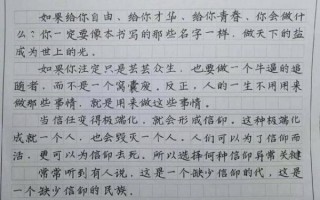 如果给你自由、给你才华、给你青春、你会做什
么？你一定要像本书写的那些名字一样，做天下的盐
成为世上的光。
如果你注定只是芸芸众生，也要做一个牛逼的追
随者，而不是一个窝囊废。反正，人的一生不用来
做那些事情，就是用来做这些事情。
当信任变得极端化，就会形成信仰。这种极端化
成就一个人，也会毁灭一个人。人们可以为了信仰而
活，更可以为信仰去死。所以选择何种信仰异常关键
常常听到有人说，这是一个缺少信仰的代，这是
一个缺少信仰的民族。